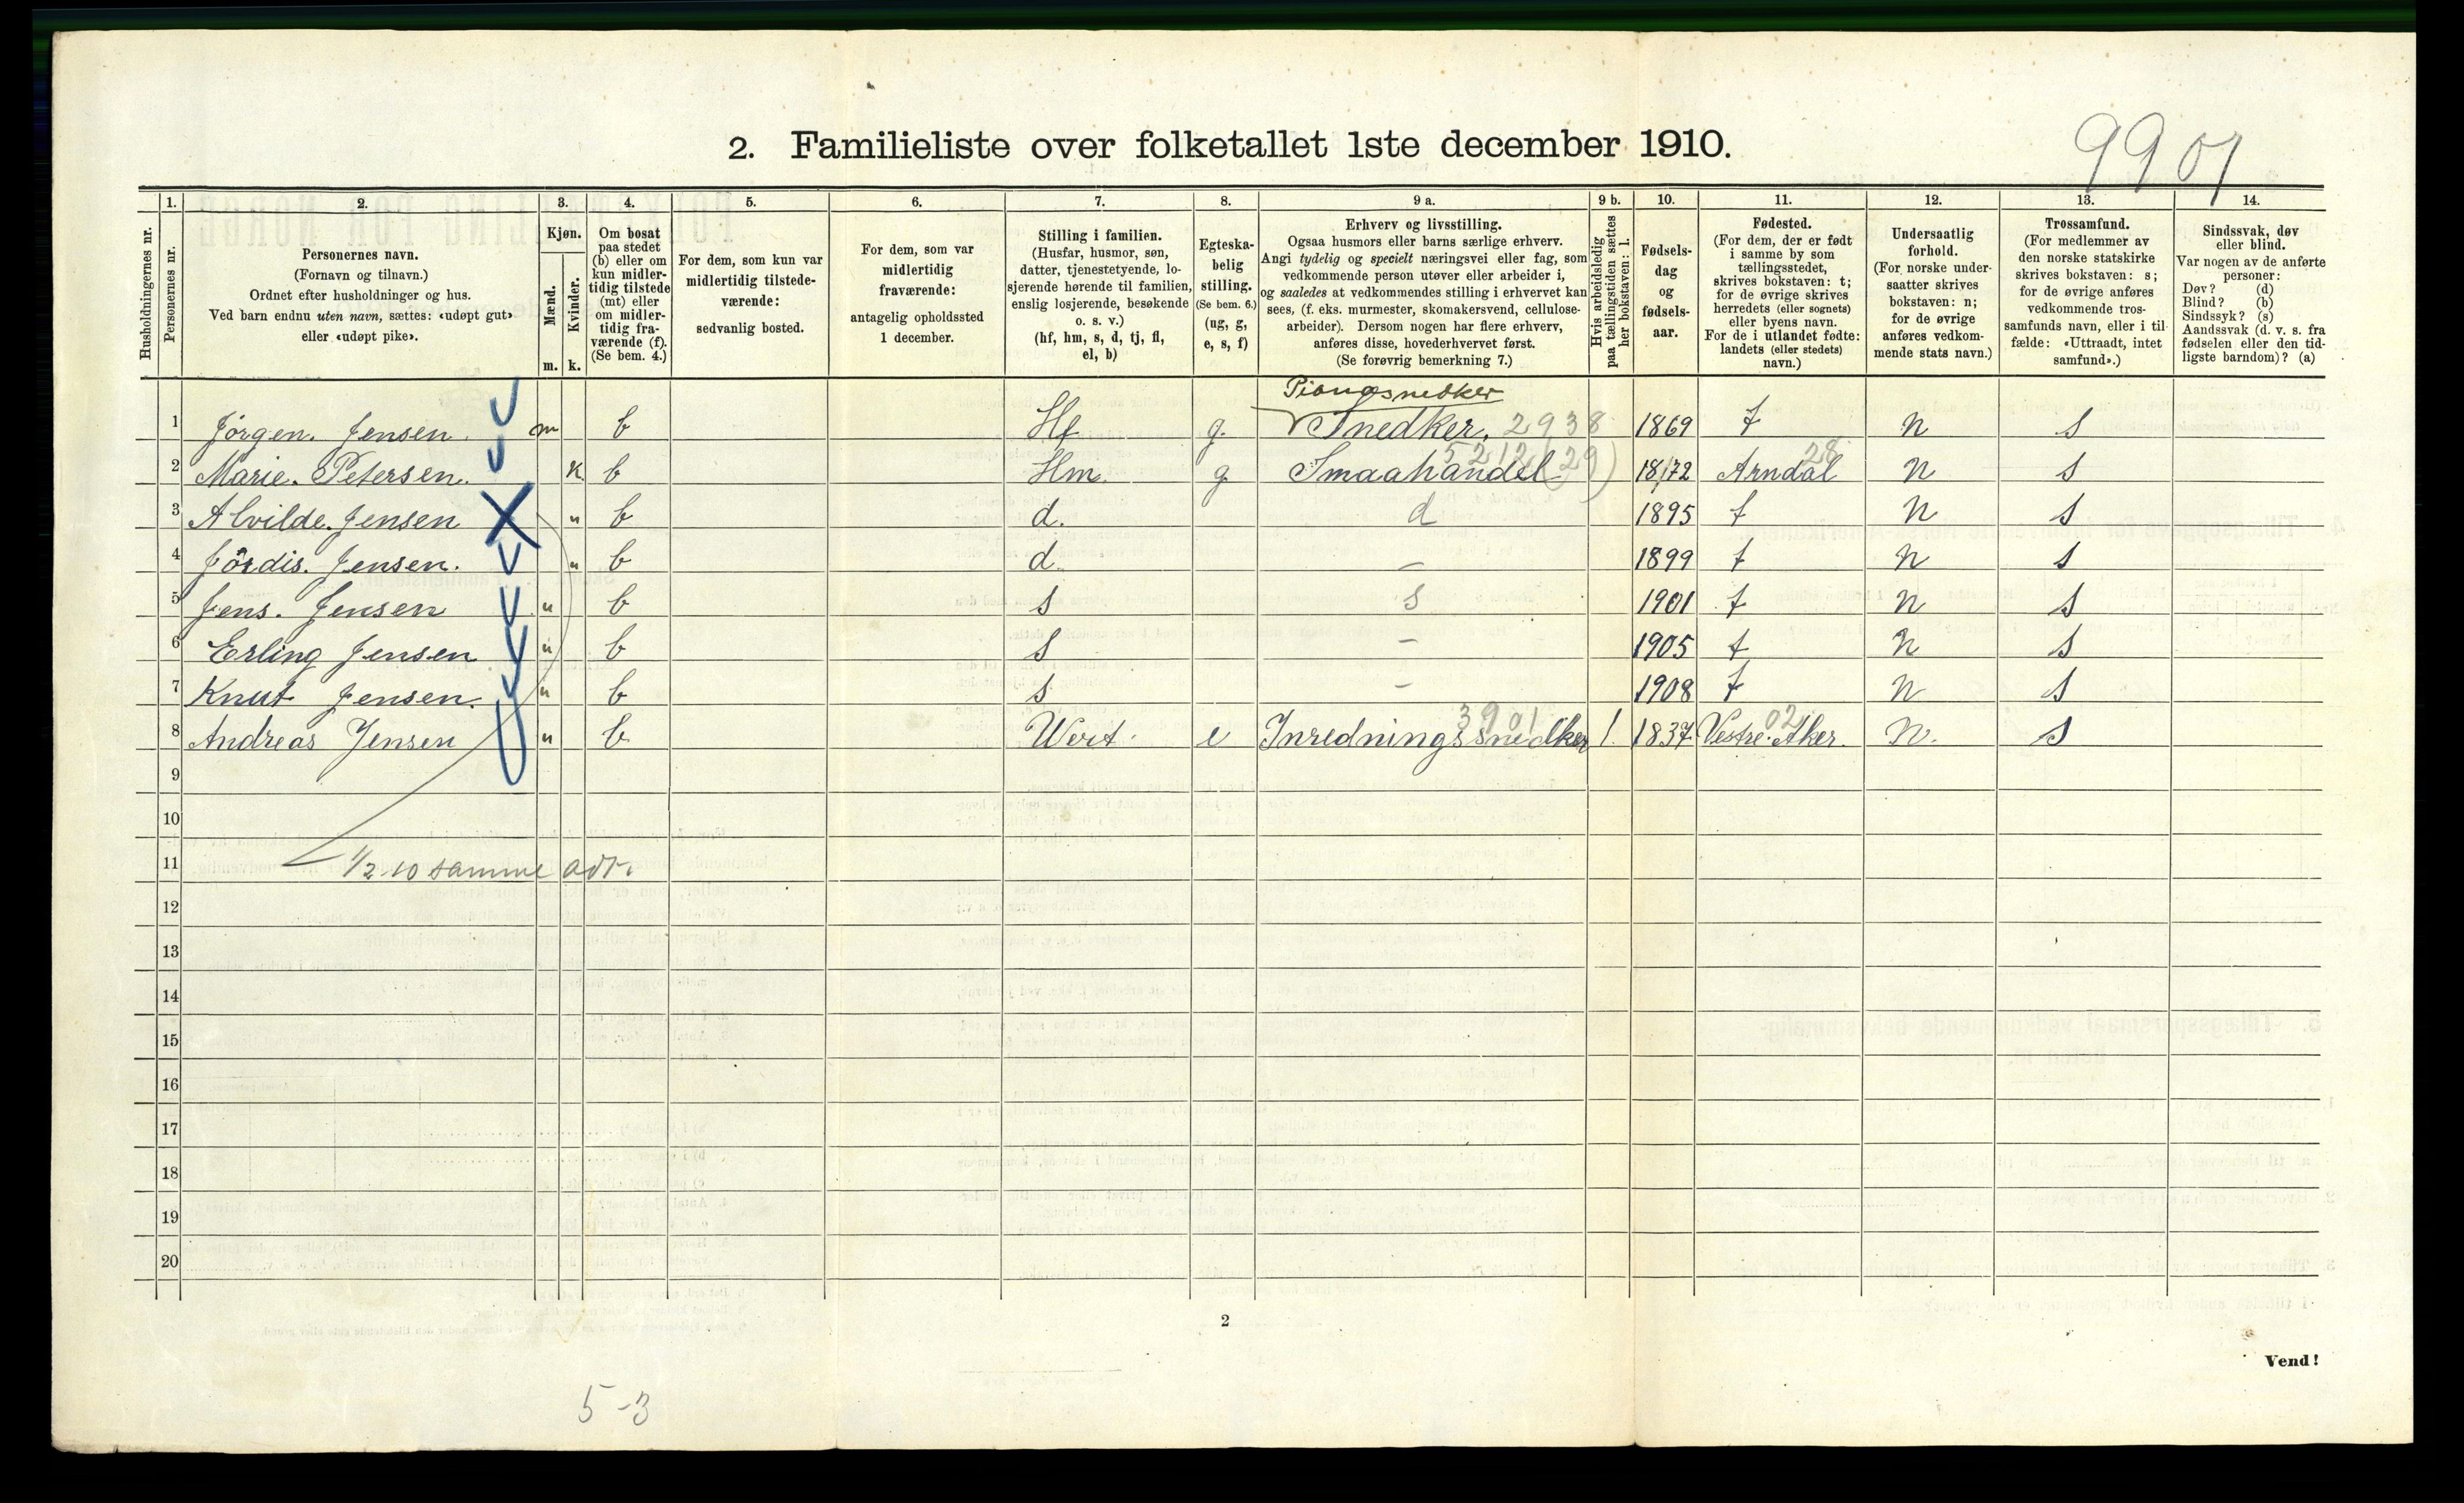 9901
2. Familieliste over folketallet 1ste december 1910.
Husholdningernes nr.
1. Personernes nr.
2. Personernes navn.
(Fornavn og tilnavn.)
Ordnet efter husholdninger og hus.
Ved barn endnu uten navn, sættes: «udøpt gut»
eller «udøpt pike».
3. Kjøn.
Mænd. m.
Kvinder. k.
4. Om bosat
paa stedet
(b) eller om
kun midler-
tidig tilstede
(mt) eller
om midler-
tidig fra-
værende (f).
(Se bem. 4.)
5. For dem, som kun var
midlertidig tilstede-
værende:
sedvanlig bosted.
6. For dem, som var
midlertidig
fraværende:
antagelig opholdssted
1 december.
7. Stilling i familien.
(Husfar, husmor, søn,
datter, tjenestetyende, lo-
sjerende hørende til familien,
enslig losjerende, besøkende
o. s. v.)
(hf, hm, s, d, tj, fl,
el, b)
8. Egteska-
belig
stilling.
(Se bem. 6.)
(ug, g,
e, s, f)
9 a. Erhverv og livsstilling.
Ogsaa husmors eller barns særlige erhverv.
Angi tydelig og specielt næringsvei eller fag, som
vedkommende person utøver eller arbeider i,
og saaledes at vedkommendes stilling i erhvervet kan
sees, (f. eks. murmester, skomakersvend, cellulose-
arbeider). Dersom nogen har flere erhverv,
anføres disse, hovederhvervet først.
(Se forøvrig bemerkning 7.)
9 b. Hvis arbeidsledig
paa tællingstiden sættes
her bokstaven: l.
10. Fødsels-
dag
og
fødsels-
aar.
11. Fødested.
(For dem, der er født
i samme by som
tællingsstedet,
skrives bokstaven: t;
for de øvrige skrives
herredets (eller sognets)
eller byens navn.
For de i utlandet fødte:
landets (eller stedets)
navn.)
12. Undersaatlig
forhold.
(For norske under-
saatter skrives
bokstaven: n;
for de øvrige
anføres vedkom-
mende stats navn.)
13. Trossamfund.
(For medlemmer av
den norske statskirke
skrives bokstaven: s;
for de øvrige anføres
vedkommende tros-
samfunds navn, eller i til-
fælde: «Uttraadt, intet
samfund».)
14. Sindssvak, døv
eller blind.
Var nogen av de anførte
personer:
Døv? (d)
Blind? (b)
Sindssyk? (s)
Aandssvak (d. v. s. fra
fødselen eller den tid-
ligste barndom)? (a)
Pianosnedker
1 Jørgen. Jensen. m b Hf g. Snedker. 2938 1869 t n s
5212 (29) 28
2 Marie. Petersen. k b Hm. g Smaahandel 1872 Arndal n s
3 Alvilde. Jensen " b d. d 1895 t n s
4 Jördis. Jensen. " b d. – 1899 t n s
5 Jens. Jensen " b s s 1901 t n s
6 Erling Jensen " b s – 1905 t n s
7 Knut Jensen. " b s – 1908 t n s
3901 02
8 Andreas Jensen " b Wert. e Inredningssnedker l. 1837 Vestre. Aker. n. s
9
10
11 1/2 10 samme adr.
12
13
14
15
16
17
18
19
20
2
Vend!
5-3